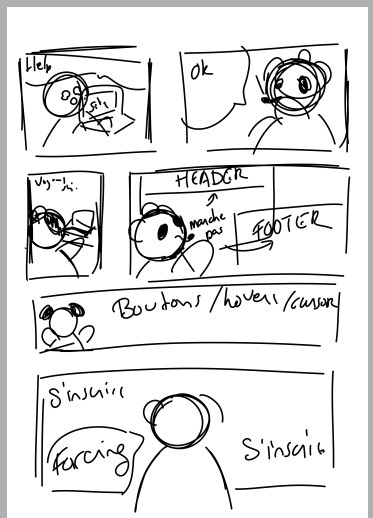 Help
Ok
HEADER
marche
pas
FOOTER
Boutons/hover/cursor
S'inscrire
Forcing
S'inscrire